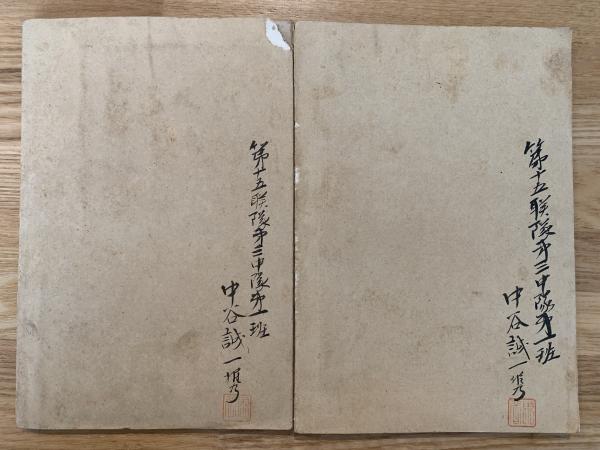 第十五联隊第三中隊第一班
中谷誠一
第十五联隊第三中隊第一班
中谷誠一